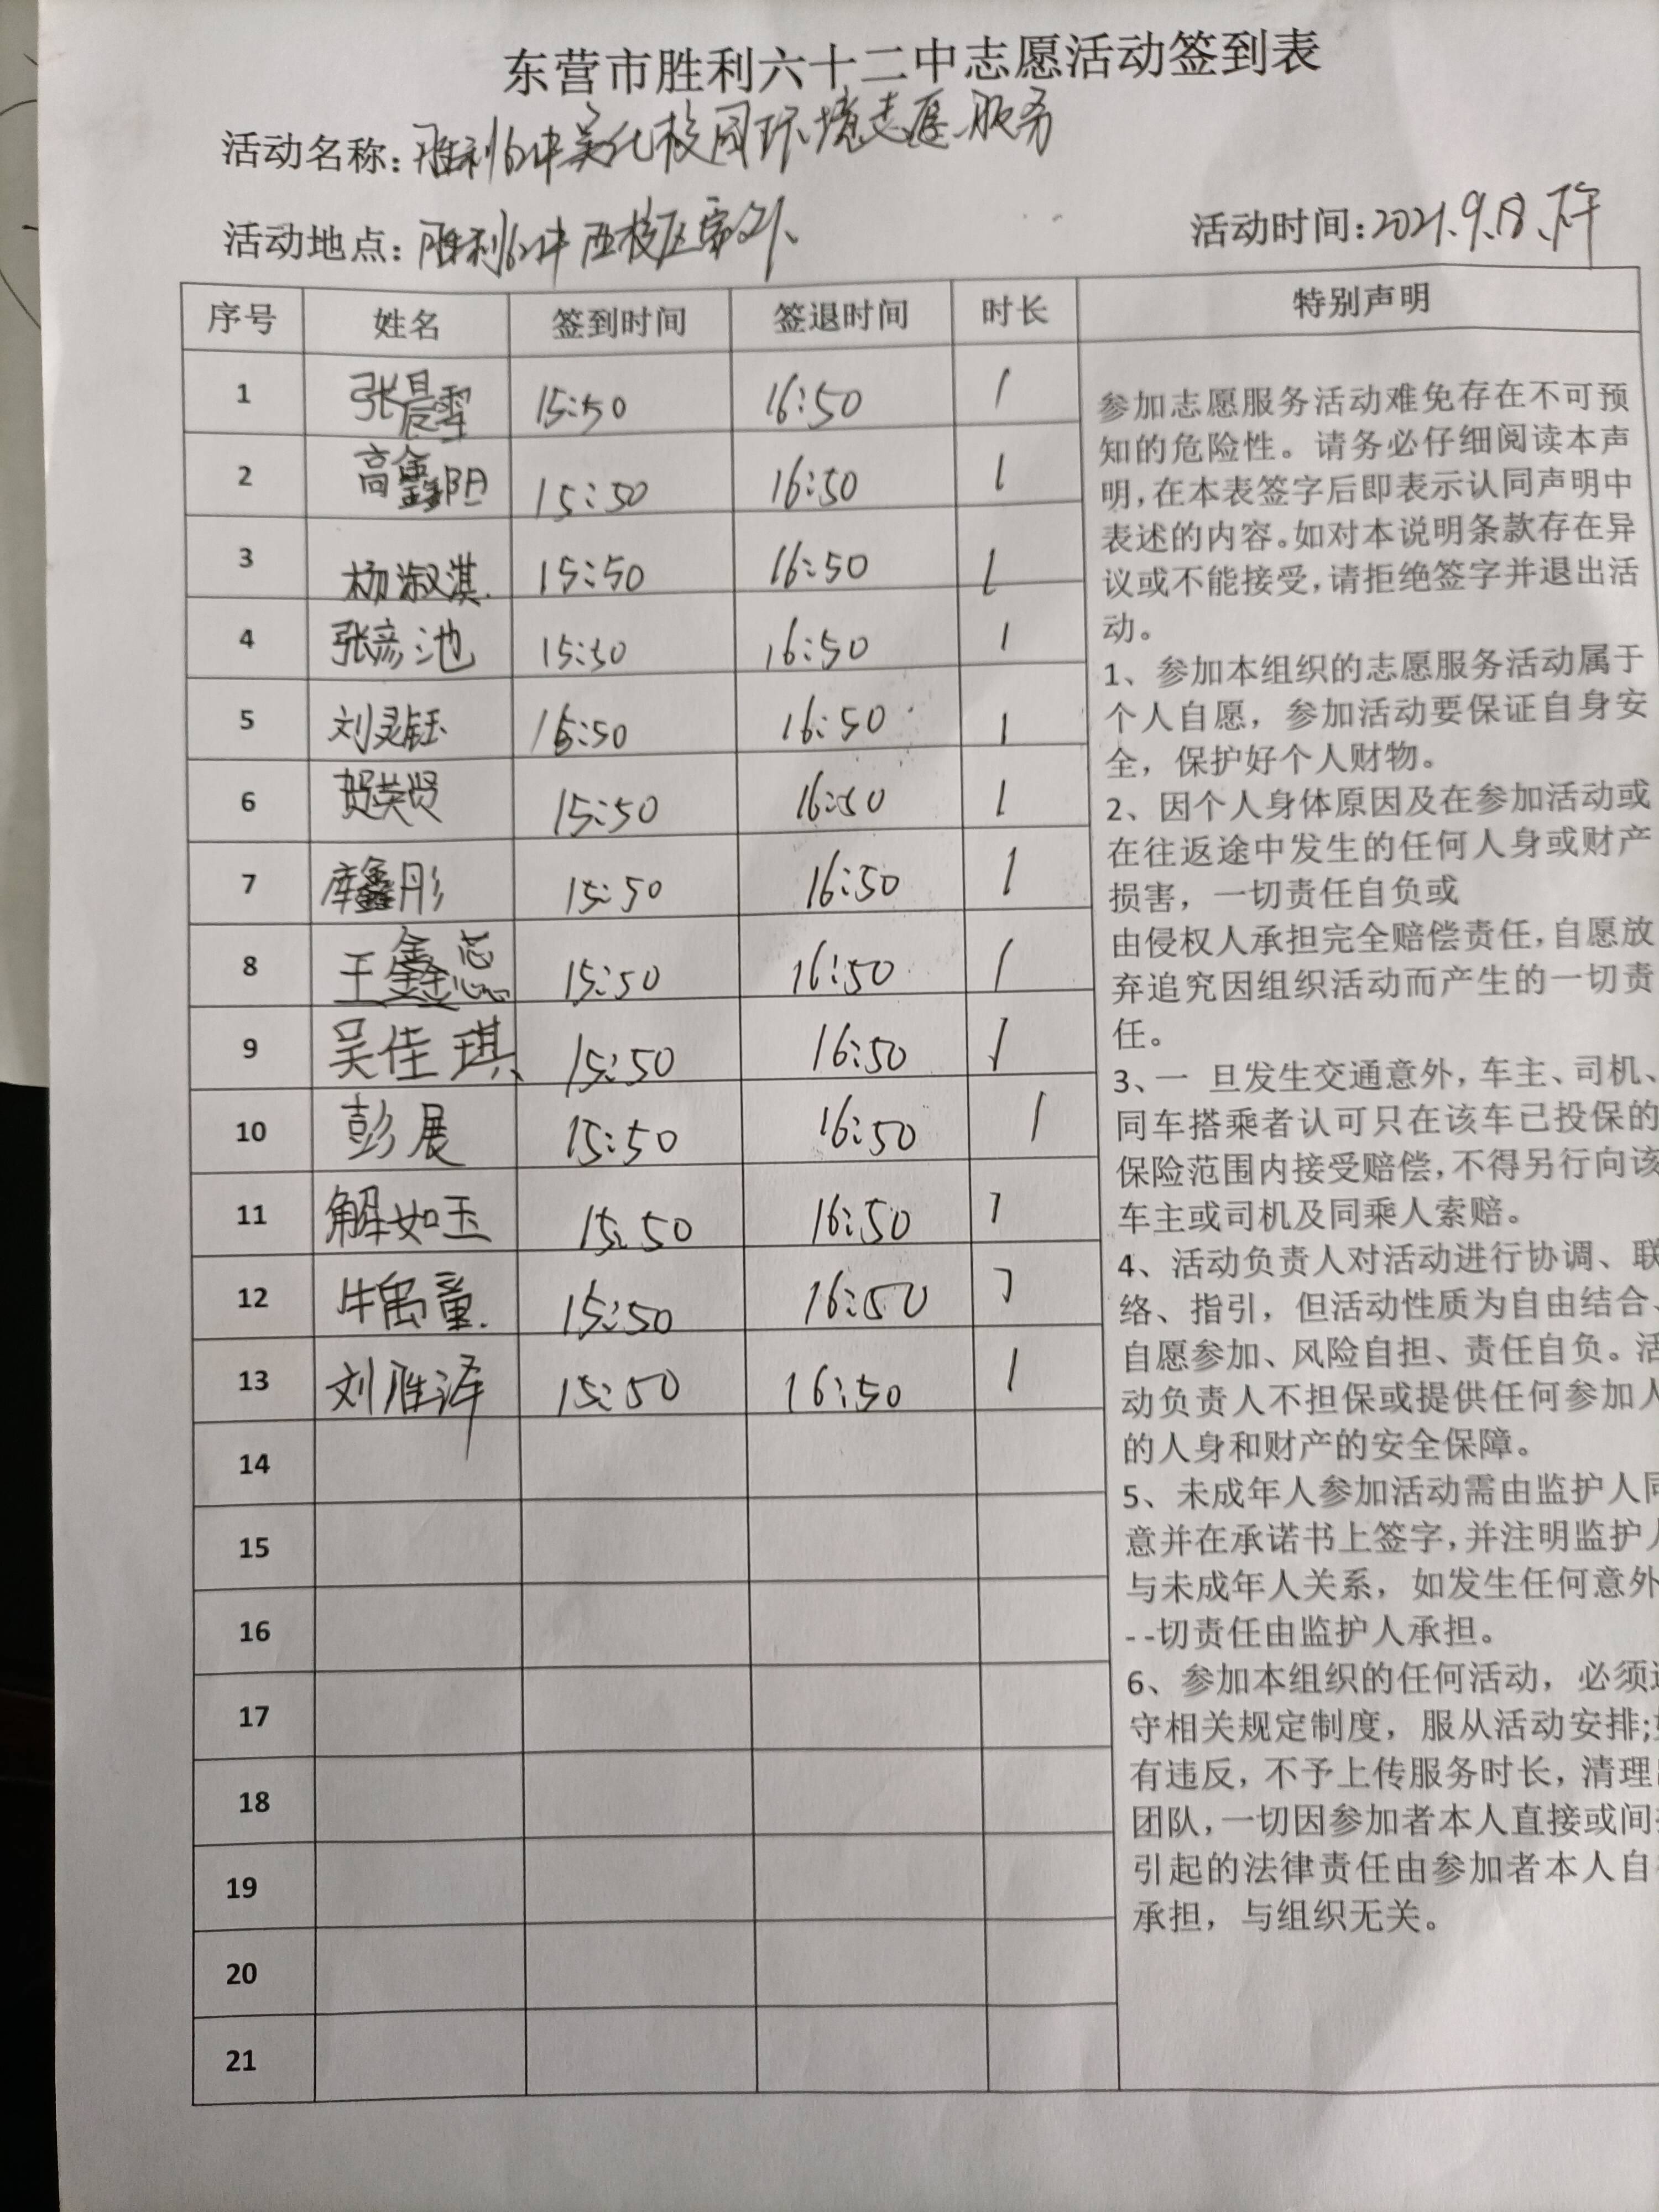 东营市胜利六十二中志愿活动签到表
活动名称:胜利62中美化校园环境志愿服务
活动地点:胜利62中西校区室外、
活动时间:2021.9.18.下午
序号 姓名 签到时间 签退时间 时长 特别声明
1 张晨雪 15:50 16:50 1
2 高鑫阳 15:50 16:50 1
3 杨淑淇. 15:50 16:50 1
4 张彦池 15:50 16:50 1
5 刘灵钰 15:50 16:50 1
6 贺英贤 15:50 16:50 1
7 鑫彤 15:50 16:50 1
8 王鑫蕊 15:50 16:50 1
9 吴佳琪 15:50 16:50 1
10 彭展 15:50 16:50 1
11 解如玉 15:50 16:50 1
12 牛禹童. 15:50 16:50 1
13 刘胜泽 15:50 16:50 1
14
15
16
17
18
19
20
21
参加志愿服务活动难免存在不可预
知的危险性。请务必仔细阅读本声
明,在本表签字后即表示认同声明中
表述的内容。如对本说明条款存在异
议或不能接受,请拒绝签字并退出活
动。
1、参加本组织的志愿服务活动属于
个人自愿，参加活动要保证自身安
全，保护好个人财物。
2、因个人身体原因及在参加活动或
在往返途中发生的任何人身或财产
损害，一切责任自负或
由侵权人承担完全赔偿责任,自愿放
弃追究因组织活动而产生的一切责
任。
3、一 旦发生交通意外，车主、司机、
同车搭乘者认可只在该车已投保的
保险范围内接受赔偿,不得另行向该
车主或司机及同乘人索赔。
4、活动负责人对活动进行协调、联
络、指引，但活动性质为自由结合、
自愿参加、风险自担、责任自负。活
动负责人不担保或提供任何参加人
的人身和财产的安全保障。
5、未成年人参加活动需由监护人同
意并在承诺书上签字,并注明监护人
与未成年人关系，如发生任何意外
--切责任由监护人承担。
6、参加本组织的任何活动，必须
守相关规定制度，服从活动安排;
有违反，不予上传服务时长，清理
团队,一切因参加者本人直接或间
引起的法律责任由参加者本人自
承担，与组织无关。